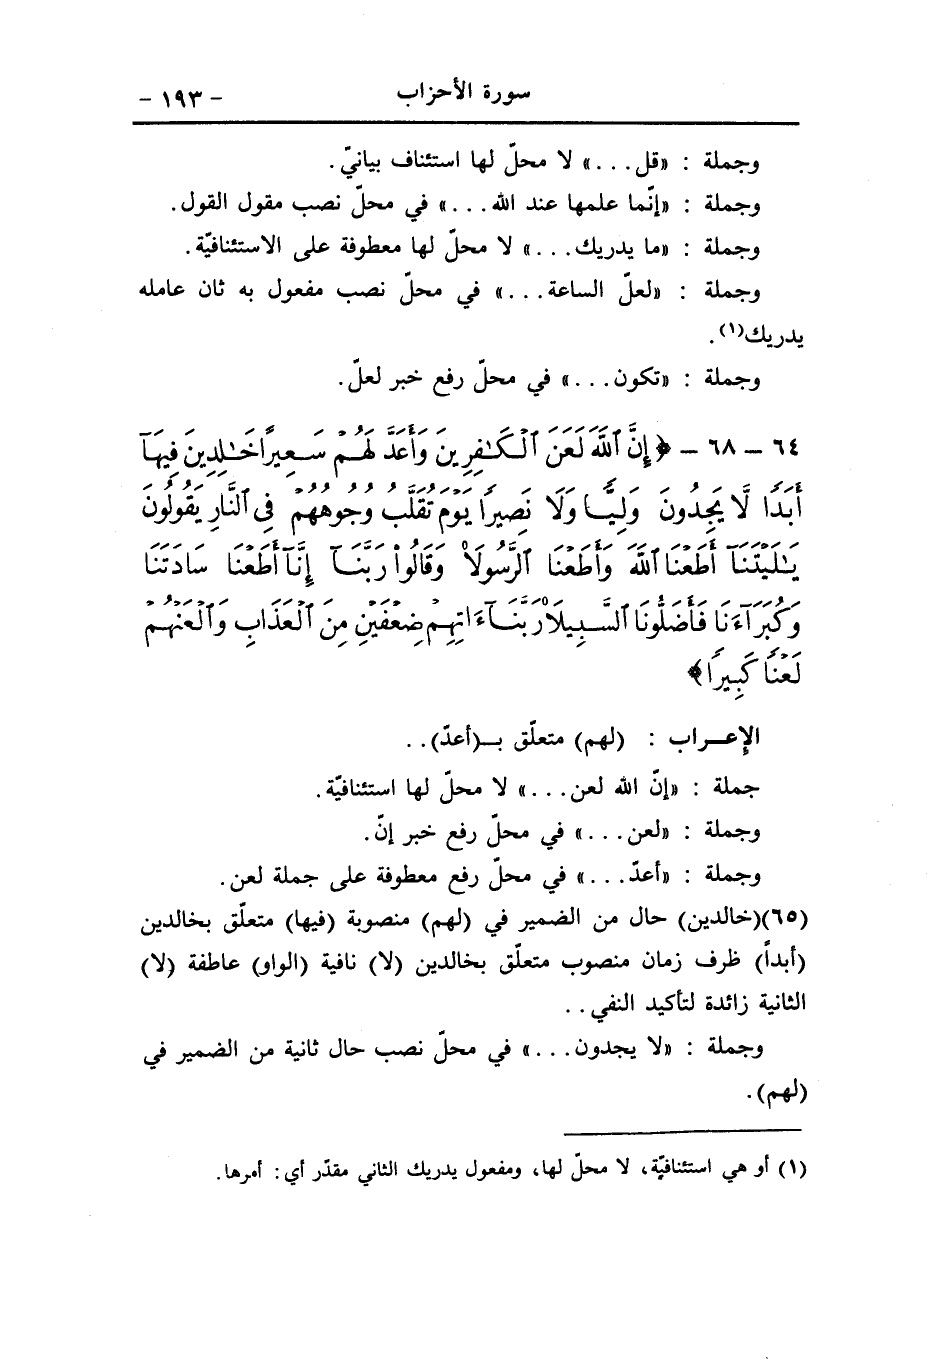 سورة الأحزاب - ١٩٣ -
وجملة : «قل...» لا محلّ لها استئناف بيانيّ.
وجملة : «إنّما علمها عند الله...» في محلّ نصب مقول القول.
وجملة : «ما يدريك...» لا محلّ لها معطوفة على الاستئنافيّة.
وجملة : «لعلّ الساعة...» في محلّ نصب مفعول به ثان عامله
يدريك(١).
وجملة : «تكون...» في محلّ رفع خبر لعلّ.
٦٤ - ٦٨ - ﴿إِنَّ ٱللَّهَ لَعَنَ ٱلْكَٰفِرِينَ وَأَعَدَّ لَهُمْ سَعِيرًا خَٰلِدِينَ فِيهَآ
أَبَدًا لَّا يَجِدُونَ وَلِيًّا وَلَا نَصِيرًا يَوْمَ تُقَلَّبُ وُجُوهُهُمْ فِى ٱلنَّارِ يَقُولُونَ
يَٰلَيْتَنَآ أَطَعْنَا ٱللَّهَ وَأَطَعْنَا ٱلرَّسُولَا۠ وَقَالُوا۟ رَبَّنَآ إِنَّآ أَطَعْنَا سَادَتَنَا
وَكُبَرَآءَنَا فَأَضَلُّونَا ٱلسَّبِيلَا۠ رَبَّنَآ ءَاتِهِمْ ضِعْفَيْنِ مِنَ ٱلْعَذَابِ وَٱلْعَنْهُمْ
لَعْنًا كَبِيرًا﴾
الإعـراب : (لهم) متعلّق بـ(أعدّ)..
جملة : «إنّ الله لعن...» لا محلّ لها استئنافيّة.
وجملة : «لعن...» في محلّ رفع خبر إنّ.
وجملة : «أعدّ...» في محلّ رفع معطوفة على جملة لعن.
(٦٥)(خالدين) حال من الضمير في (لهم) منصوبة (فيها) متعلّق بخالدين
(أبداً) ظرف زمان منصوب متعلّق بخالدين (لا) نافية (الواو) عاطفة (لا)
الثانية زائدة لتأكيد النفي..
وجملة : «لا يجدون...» في محلّ نصب حال ثانية من الضمير في
(لهم).
(١) أو هي استئنافيّة، لا محلّ لها، ومفعول يدريك الثاني مقدّر أي: أمرها.